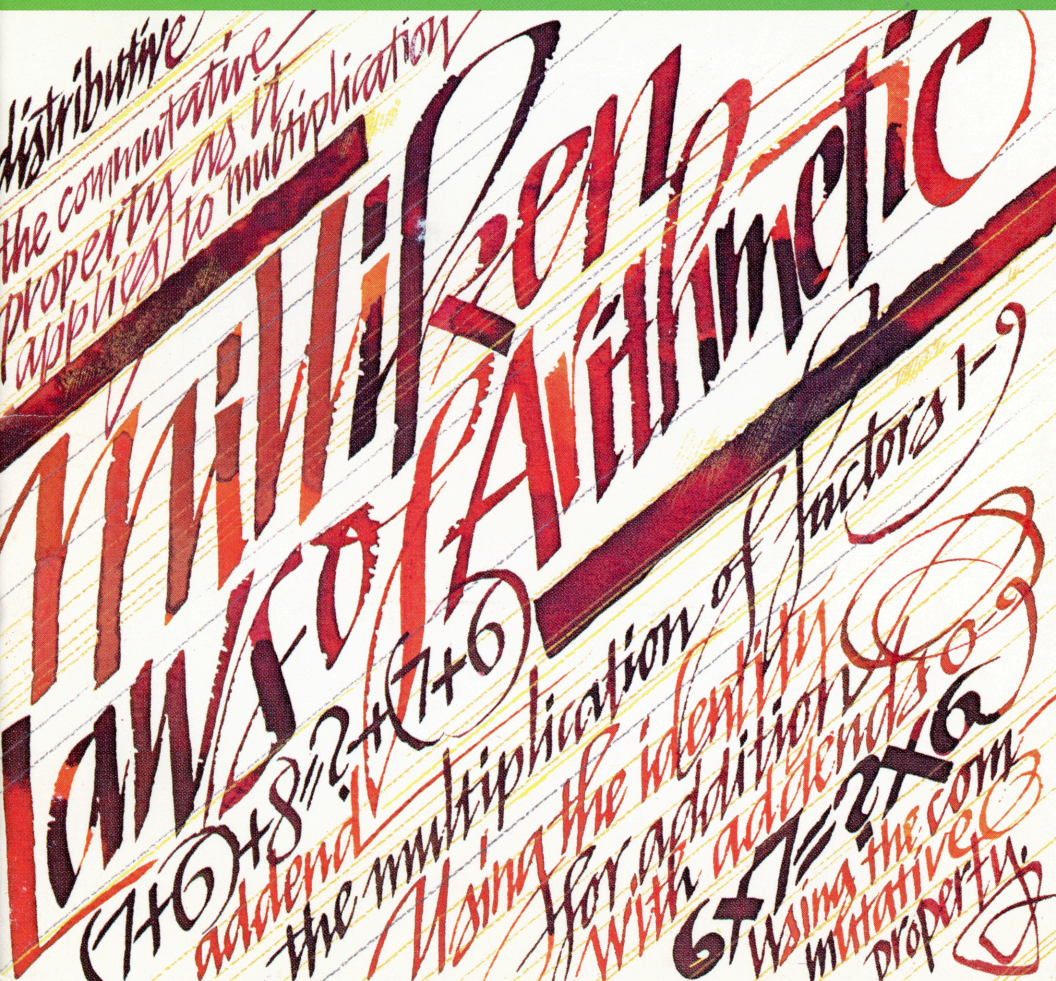 distributive
the commutative
property as it
applies to multiplication
Milliken
Laws of Arithmetic
(7+6)+8=?+(7+6)
addend
the multiplication of factors 1-9
Using the identity
for addition
with addends 0-9
6+7=?+6
Using the com
mutative
property.